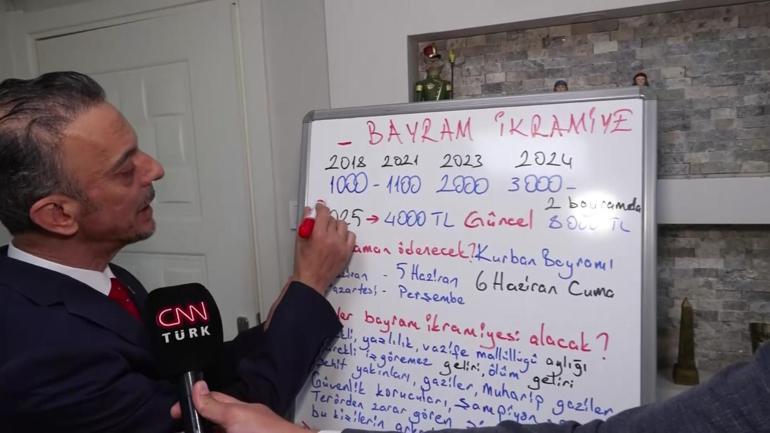 BAYRAM İKRAMİYE
2018 2021 2023 2024
1000 - 1100 2000 3000 -
2 bayramda
025 → 4000 TL Güncel 8000 TL
aman ödenecek? Kurban Bayramı
iran - 5 Haziran 6 Haziran Cuma
azartesi - Perşembe
ler bayram ikramiyesi alacak?
kli, yazlılık, vazife mallüllüğü aylığı
ürekli iş göremez geliri, ölüm geliri
ehit yakınları, gaziler, Muharip gaziler
Güvenlik korucuları, şampiyon
Terörden zarar gören
bu kişilerin
CNN
TÜRK